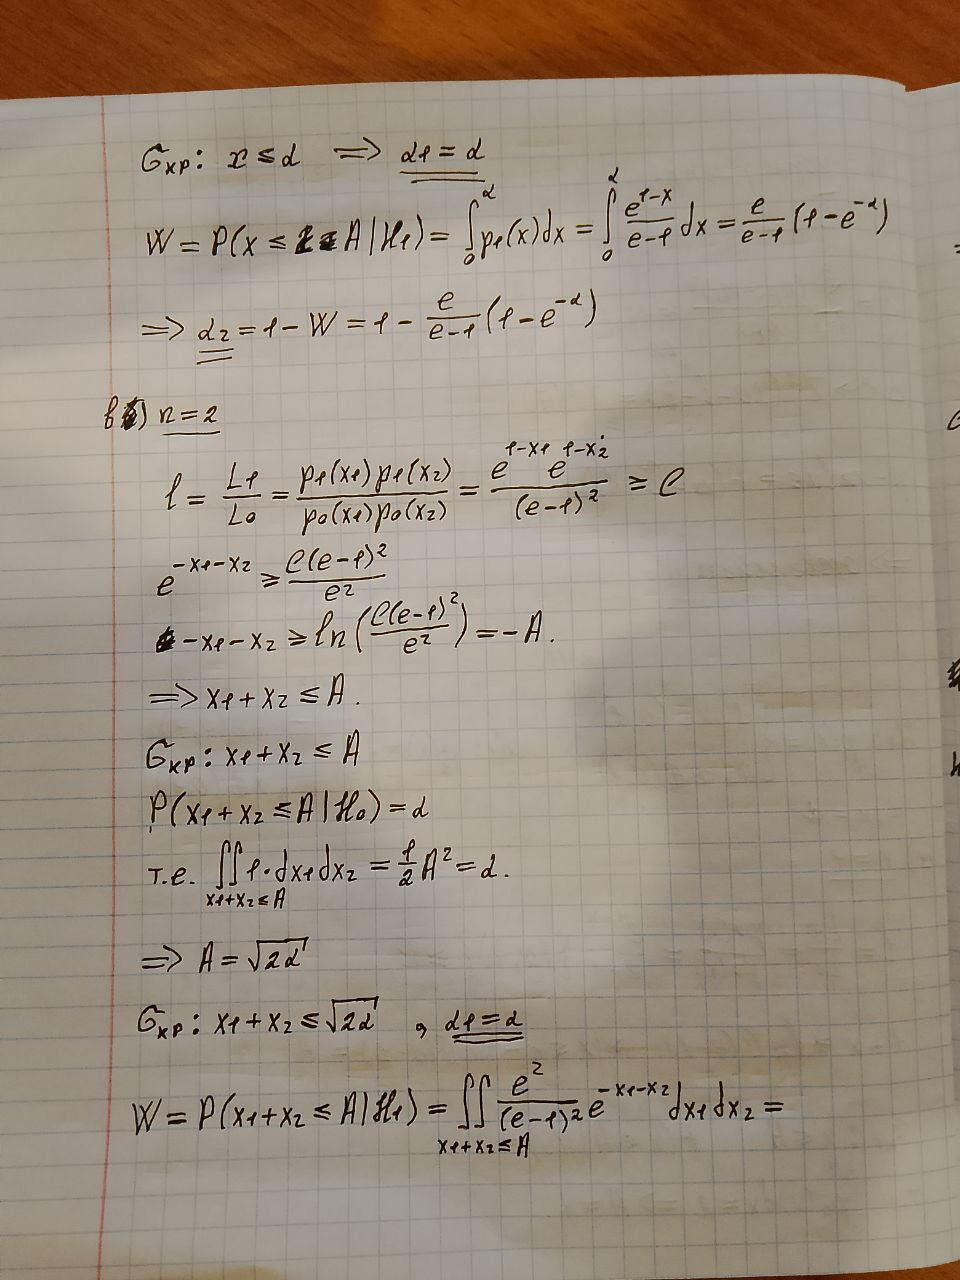 Gкр: x ≤ α ⟹ α1 = α
W = P(x ≤ A | H1) = ∫₀^α p1(x)dx = ∫₀^α e^(1-x)/(e-1) dx = e/(e-1) (1 - e^(-α))
⟹ α2 = 1 - W = 1 - e/(e-1) (1 - e^(-α))
в) n = 2
l = L1/L0 = p1(x1)p1(x2)/(p0(x1)p0(x2)) = e^(1-x1) e^(1-x2)/(e-1)² ≥ C
e^(-x1-x2) ≥ C(e-1)²/e²
-x1-x2 ≥ ln(C(e-1)²/e²) = -A.
⟹ x1+x2 ≤ A.
Gкр: x1+x2 ≤ A
P(x1+x2 ≤ A | H0) = α
т.е. ∬_(x1+x2≤A) 1·dx1dx2 = 1/2 A² = α.
⟹ A = √(2α)
Gкр: x1+x2 ≤ √(2α) , α1 = α
W = P(x1+x2 ≤ A | H1) = ∬_(x1+x2≤A) e²/(e-1)² e^(-x1-x2) dx1dx2 =